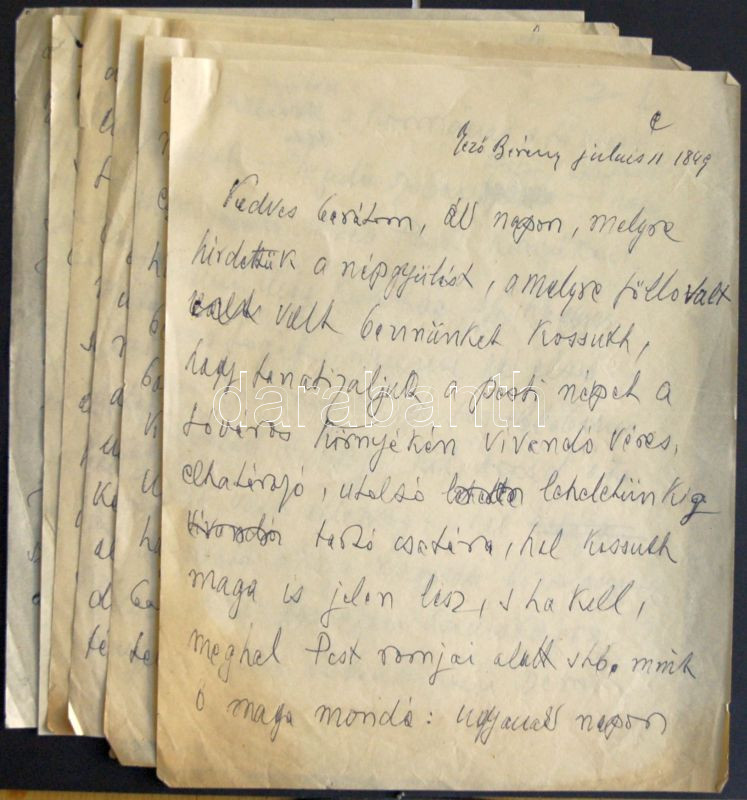 Mező Berény julius 11 1849
Kedves barátom, az nap on, melyre
hirdettük a népgyülést, a melyre föllo valt
valt benünket Kossuth,
hogy fanatizaljuk a pesti népet a
főváros környékén vivandó véres,
elhatározó, utolsó lehelletünkig
vivandó tartó csatára, hol Kossuth
maga is jelen lesz, s ha kell,
meghal Pest romjai alatt stb. mint
ő maga mondá: ugyanaz napon
darabanth